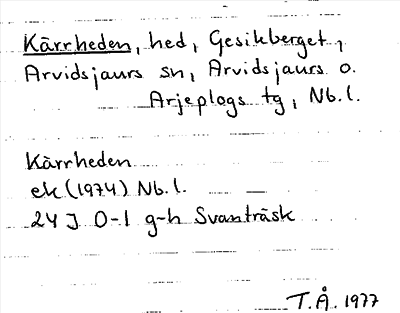 Kärrheden, hed, Gesikberget,
Arvidsjaurs sn, Arvidsjaurs o.
Arjeplogs tg, Nb.l.
Kärrheden
ek (1974) Nb.l.
24 J 0-1 g-h Svanträsk
T.Å. 1977